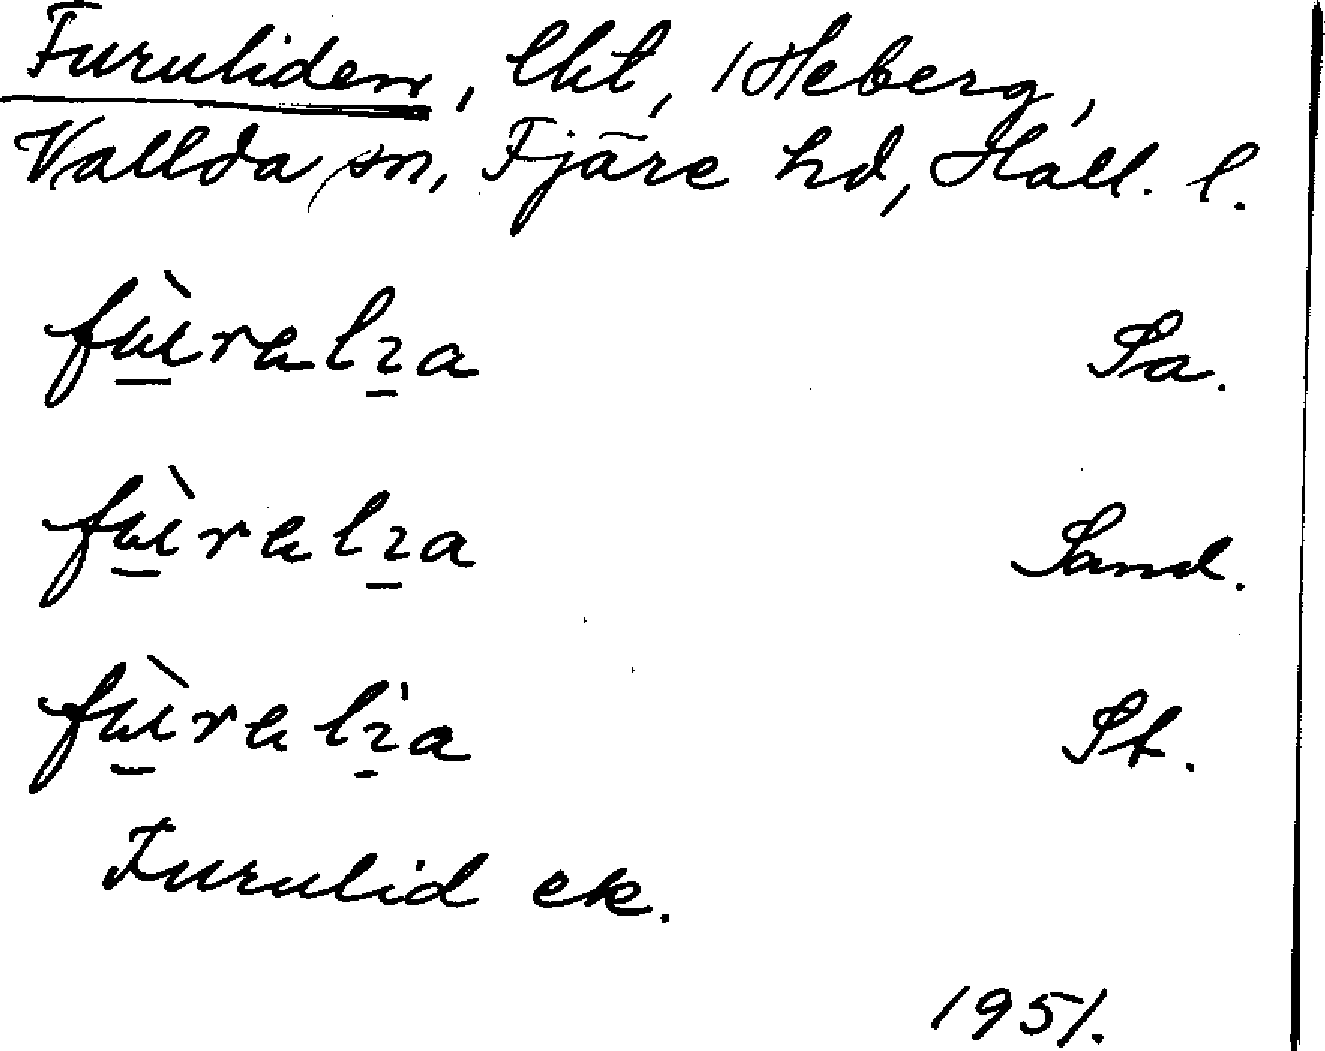 Furuliden, lht, 1 Heberg,
Vallda sn, Fjäre hd, Hall. l.
fu̠̇̀ralı̠a Sa.
fu̠̇̀ralı̠a Sand.
fu̠̇̀ralı̠a St.
Furulid ek.
1951.